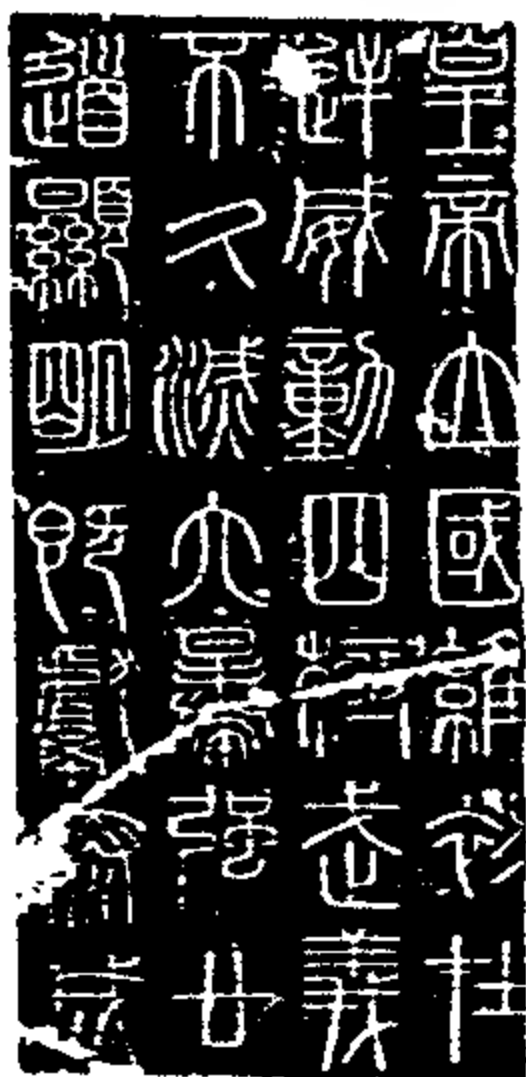 皇帝立國維初在
逆威動四極武義
不久滅六暴強廿
道顯明既獻泰成